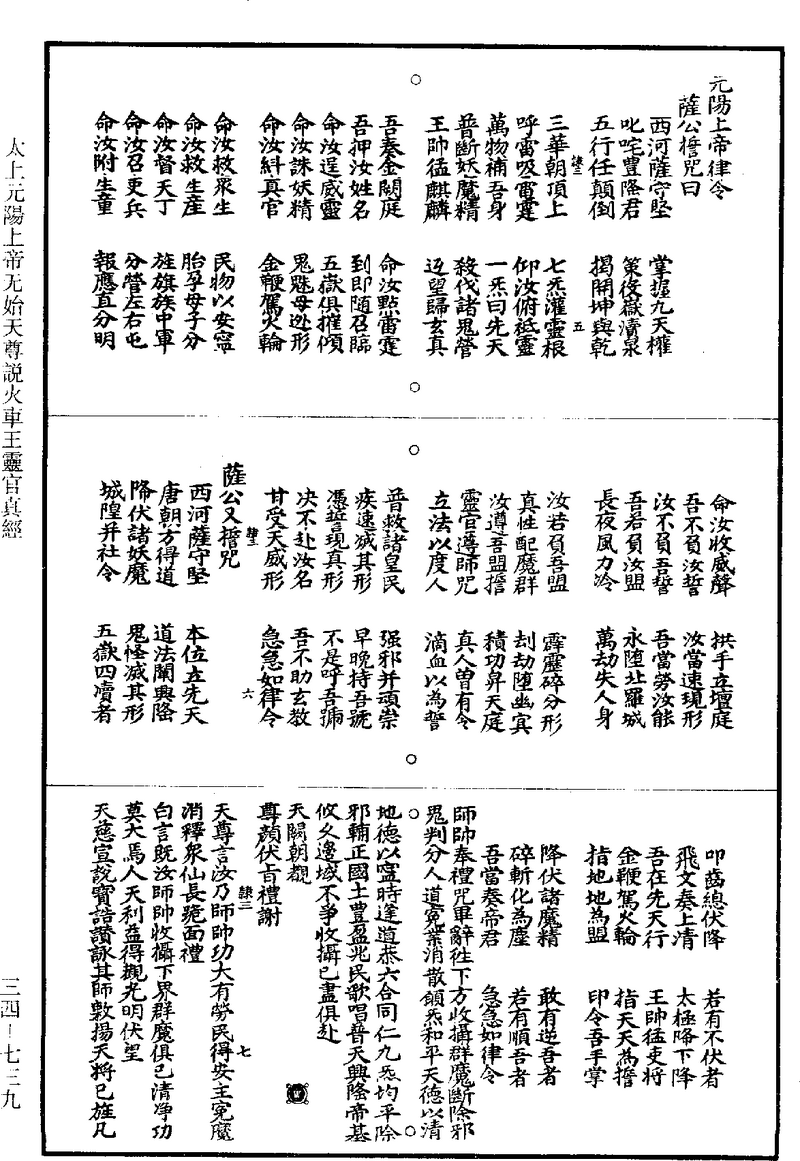 元陽上帝律令
薩公㨪咒曰
西河薩守堅　掌握九天權
叱咤豐隆君　策役嶽瀆泉
五行任顛倒　揭開坤與乾
隷三　五
三華朝頂上　七炁灌靈根
呼雷吸雷霆　仰汝俯祗靈
萬物補吾身　一炁曰先天
普斷妖魔精　殺伐諸鬼營
王帥猛麒麟　迓望歸玄真
吾奏金闕庭　命汝點雷霆
吾押汝姓名　到即随召臨
命汝逞威靈　五嶽俱摧傾
命汝誅妖精　鬼魅毋逃形
命汝糾真官　金鞭駕火輪
命汝救眾生　民物以安寧
命汝救生產　胎孕母子分
命汝督天丁　旌旗旋中軍
命汝召吏兵　分營左右屯
命汝附生童　報應直分明
命汝收威聲　拱手立壇庭
吾不負汝誓　汝當速現形
汝不負吾誓　吾當勞汝能
吾若負汝盟　永墮北羅城
長夜風刀冷　萬劫失人身
汝若負吾盟　霹靂碎分形
真性配魔群　刦劫墮幽冥
汝遵吾盟誓　積功昇天庭
靈官遵師咒　真人曽有令
立法以度人　滴血以為誓
普救諸皇民　强邪并頑祟
疾速滅其形　早晚持吾號
憑誓言現真形　不是呼吾號
决不赴汝名　吾不助玄教
甘受天威形　急急如律令
隷三　六
薩公又誓咒
西河薩守堅　本位在先天
唐朝方得道　道法闡興隆
降伏諸妖魔　鬼怪滅其形
城隍并社令　五嶽四瀆者
叩齒總伏降　若有不伏者
飛文奏上清　太極降下降
吾在先天行　王帥猛吏將
金鞭駕火輪　指天天為誓
指地地為盟　印令吾手掌
降伏諸魔精　敢有逆吾者
碎斬化為塵　若有順吾者
吾當奏帝君　急急如律令
師帥奉禮咒畢辭徃下方收攝群魔斷除邪
鬼判分人道冤業消散願炁和平天德以清
地德以寧時逢道泰六合同仁九炁均平除
邪輔正國土豐盈兆民歌唱普天興隆帝基
攸乆邊域不爭收攝已盡俱赴
天闕朝覲
尊顏伏旨禮謝
隷三　七
天尊言汝乃師帥功大有勞民得安主冤魔
消釋衆仙長跪面禮
白言既汝師帥收攝下界群魔俱已清淨功
莫大焉人天利益得觀光明伏望
天慈宣說寳誥讚詠其師敷揚天將已旌凡
太上元陽上帝无始天尊説火車王靈官真經
三四－七三九